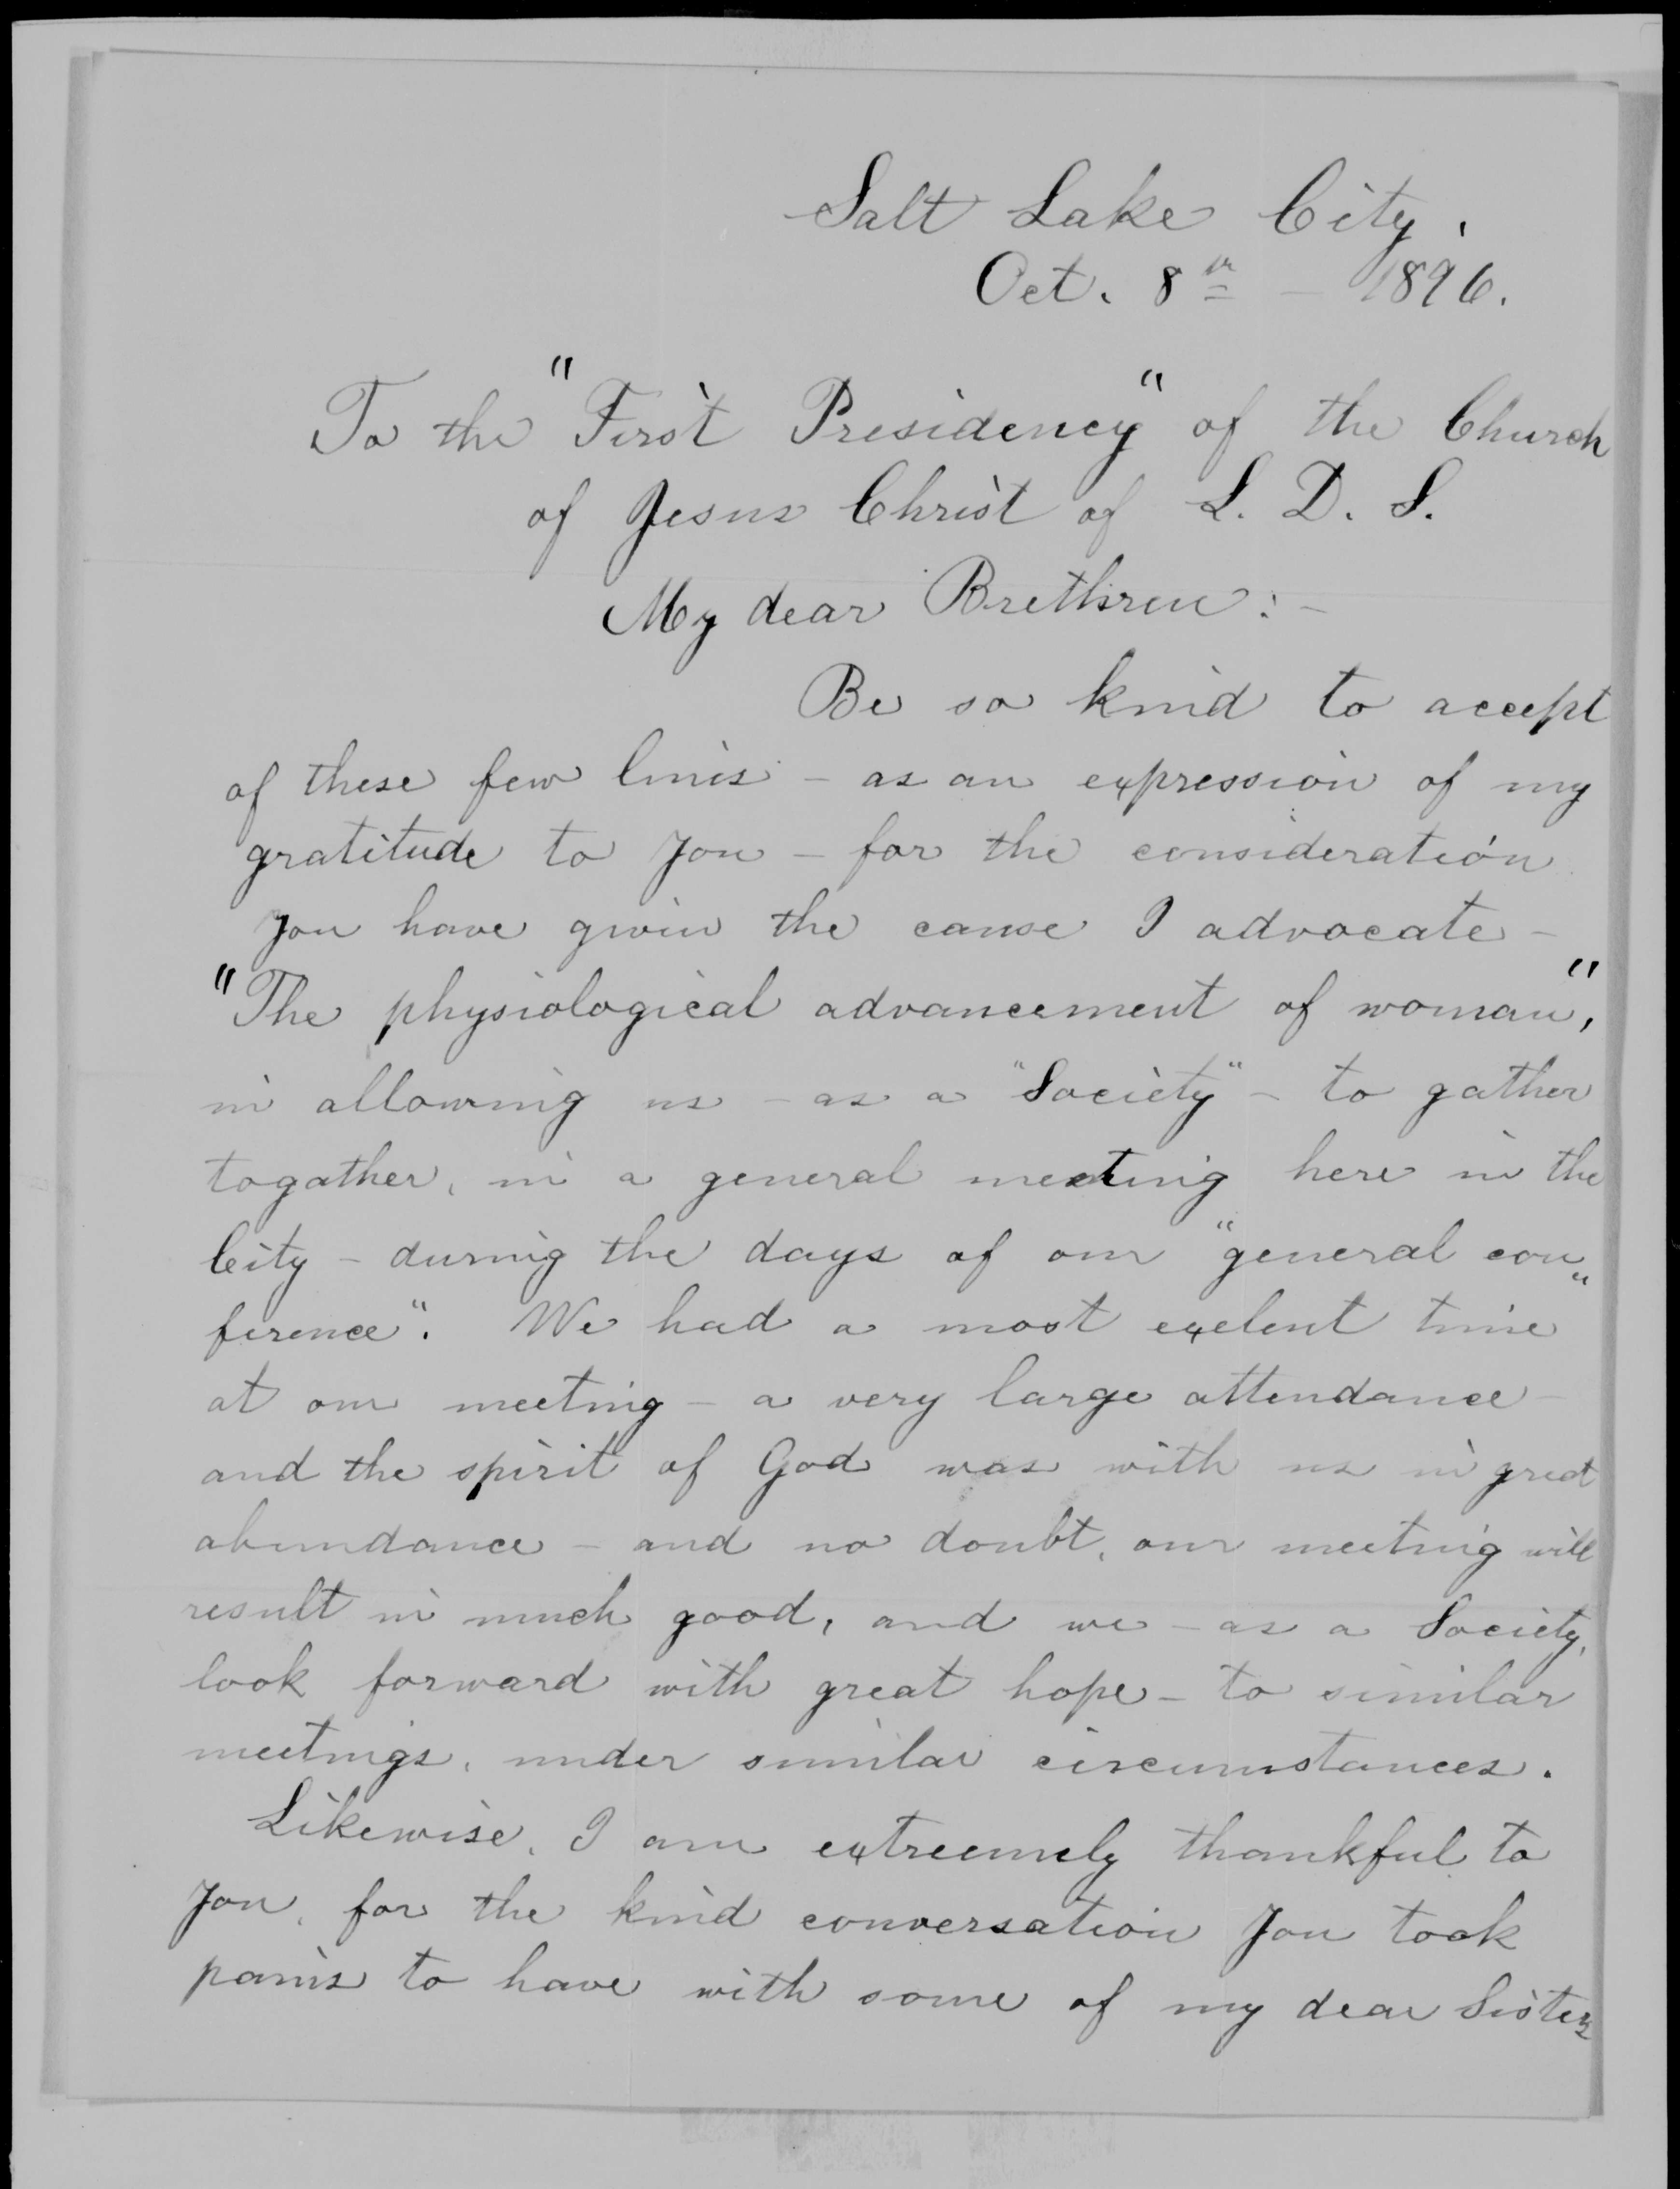 Salt Lake City.
Oct. 8th – 1896.
To the "First Presidency" of the Church
of Jesus Christ of L. D. S.
My dear Brethren:–
Be so kind to accept
of these few lines – as an expression of my
gratitude to You – for the consideration
You have given the cause I advocate –
"The physiological advancement of woman",
in allowing us – as a "Society" – to gather
togather, in a general meeting here in the
City – during the days of our "general con"
ference". We had a most exelent time
at our meeting – a very large attendance –
and the spirit of God was with us in great
abundance – and no doubt, our meeting will
result in much good, and we – as a Society,
look forward with great hope – to similar
meetings, under similar circumstances.
Likewise, I am extreemely thankful to
You, for the kind conversation You took
pains to have with some of my dear Sisters